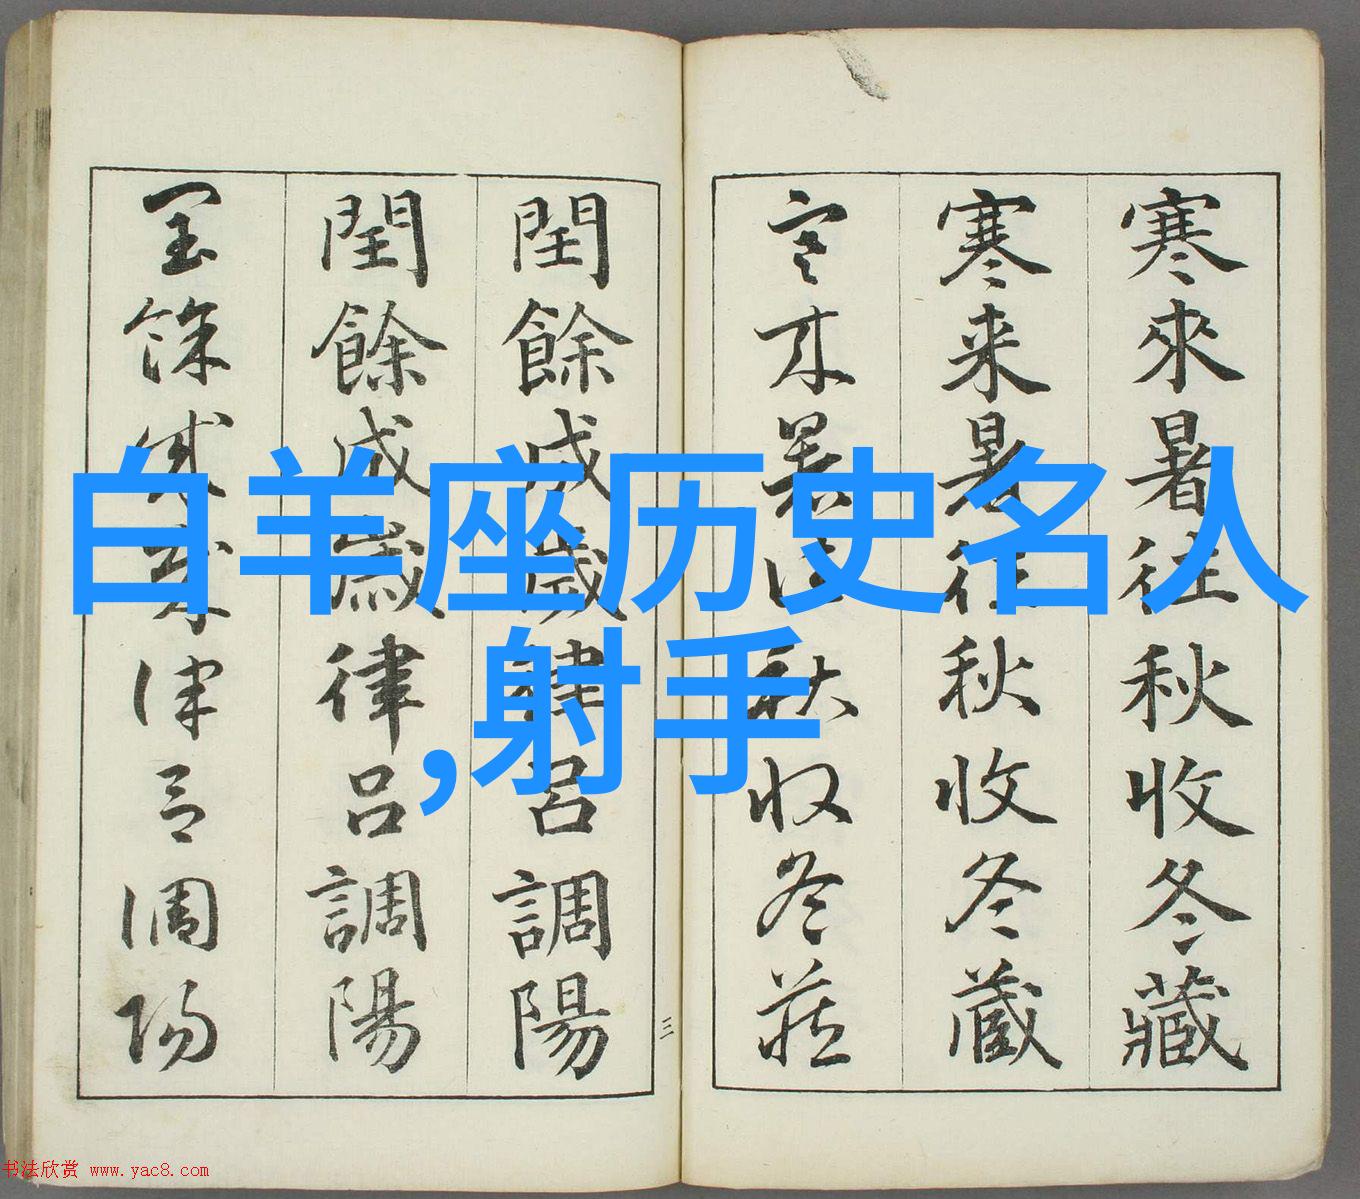 寒來暑往秋收冬藏
寒来暑往秋收冬蔵
寒来暑往秋収冬蔵
閏餘成歲律呂調陽
閏餘成歳律呂調陽
閏餘成歳律呂調陽
三
白羊座历史名人
,射手
书法欣赏 www.yac8.com